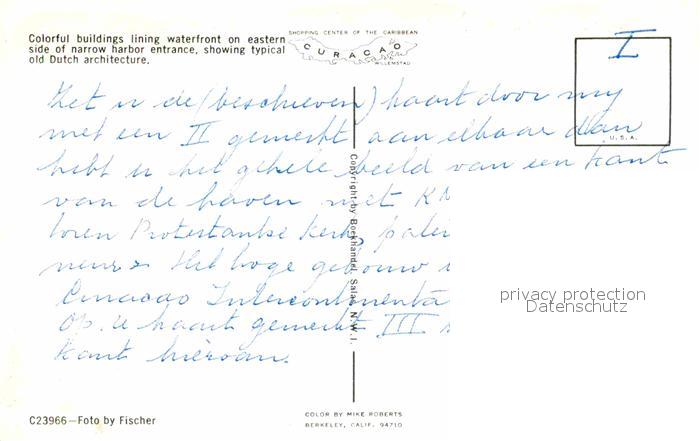 Colorful buildings lining waterfront on eastern
side of narrow harbor entrance, showing typical
old Dutch architecture.
SHOPPING CENTER OF THE CARIBBEAN
CURACAO
WILLEMSTAD
I
U.S.A.
Zet u de (beschreven) kaart door my
met een II gemerkt aan elkaar dan
hebt u het gehele beeld van een kant
van de haven met
toren Protestantse Kerk,
Het hoge gebouw
Curacao Intercontinenta
Op de kaart gemerkt III
kant hiervan.
Copyright by Boekhandel Salas, N.W.I.
privacy protection
Datenschutz
C23966—Foto by Fischer
COLOR BY MIKE ROBERTS
BERKELEY, CALIF. 94710